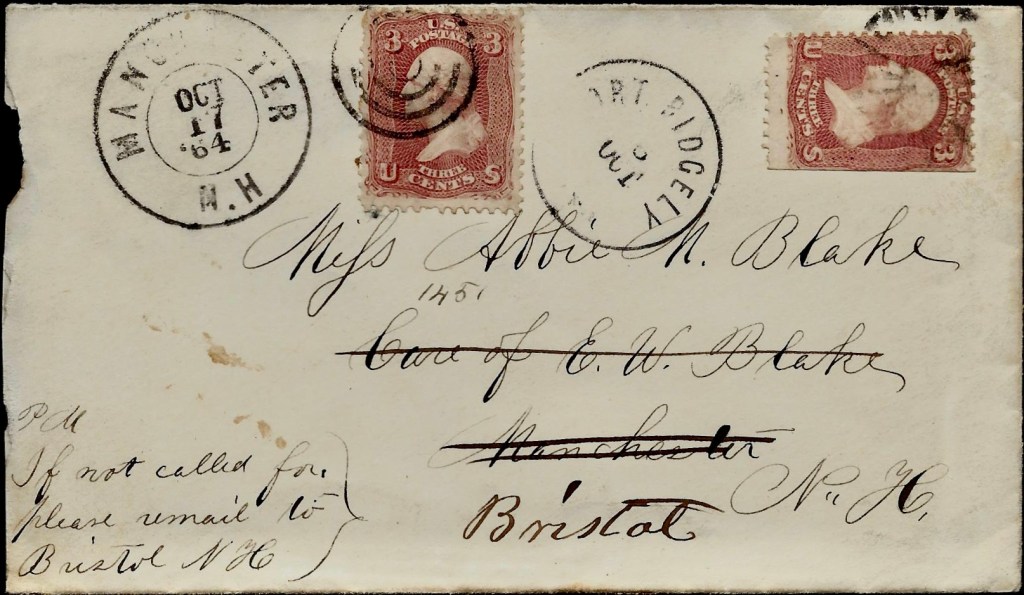 MANCHESTER
OCT
17
'64
N.H
U.S.
POSTAGE
3 3
THREE
U CENTS S
ORT RIDGELY
OCT
U.S.
3 3
THREE
U CENTS S
Miss Abbie M. Blake
145
Care of E. W. Blake
Manchester
N. H.
Bristol
P M
If not called for
please remail to
Bristol NH